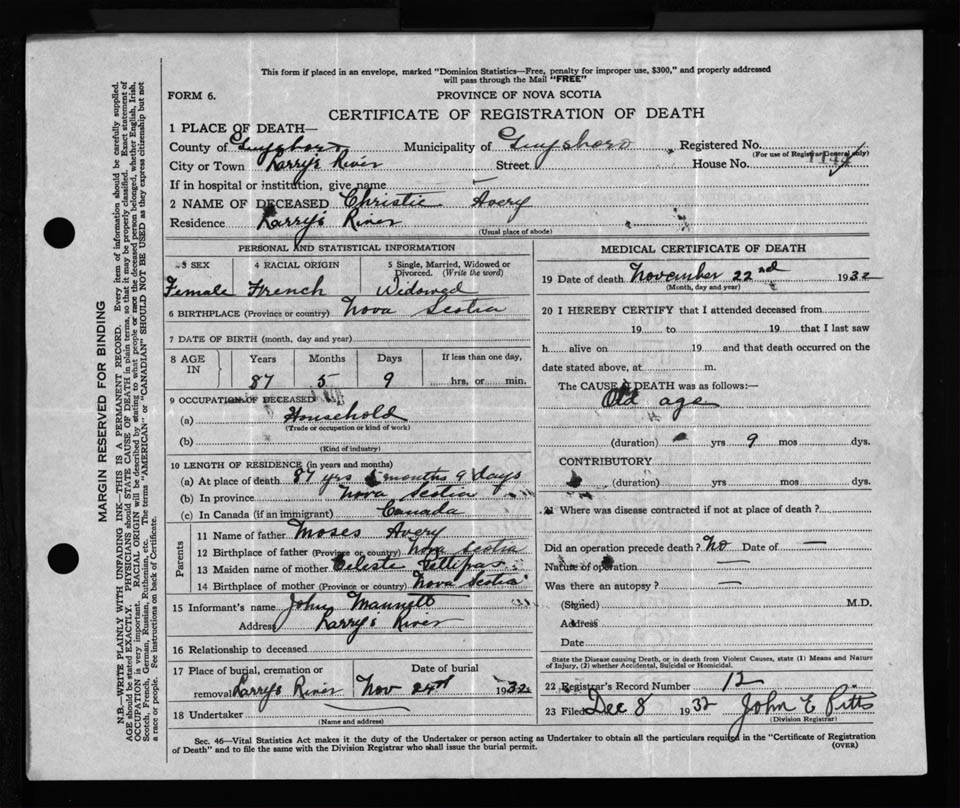 This form if placed in an envelope, marked "Dominion Statistics—Free, penalty for improper use, $300," and properly addressed
will pass through the Mail "FREE"
FORM 6.
PROVINCE OF NOVA SCOTIA
CERTIFICATE OF REGISTRATION OF DEATH
1 PLACE OF DEATH—
County of Guysboro Municipality of Guysboro Registered No.
(For use of Registrar General only)
City or Town Larry's River Street House No.
If in hospital or institution, give name
2 NAME OF DECEASED Christie Avery
Residence Larry's River
(Usual place of abode)
PERSONAL AND STATISTICAL INFORMATION
3 SEX 4 RACIAL ORIGIN 5 Single, Married, Widowed or Divorced. (Write the word)
Female French Widowed
6 BIRTHPLACE (Province or country) Nova Scotia
7 DATE OF BIRTH (month, day and year)
8 AGE IN Years Months Days If less than one day,
87 5 9 hrs. or min.
9 OCCUPATION OF DECEASED
(a) Household
(Trade or occupation or kind of work)
(b)
(Kind of industry)
10 LENGTH OF RESIDENCE (in years and months)
(a) At place of death 87 yrs 5 months 9 days
(b) In province Nova Scotia
(c) In Canada (if an immigrant) Canada
Parents
11 Name of father Moses Avery
12 Birthplace of father (Province or country) Nova Scotia
13 Maiden name of mother Celeste Pettipas
14 Birthplace of mother (Province or country) Nova Scotia
15 Informant's name John Mannett
Address Larry's River
16 Relationship to deceased
17 Place of burial, cremation or removal Larry's River
Date of burial
Nov 24th 1932
18 Undertaker
(Name and address)
MEDICAL CERTIFICATE OF DEATH
19 Date of death November 22nd 1932
(Month, day and year)
20 I HEREBY CERTIFY that I attended deceased from
19 to 19 that I last saw
h alive on 19 and that death occurred on the
date stated above, at m.
The CAUSE OF DEATH was as follows:—
Old age
(duration) yrs 9 mos dys.
CONTRIBUTORY
(duration) yrs. mos. dys.
21 Where was disease contracted if not at place of death?
Did an operation precede death? No Date of —
Nature of operation —
Was there an autopsy? —
(Signed) M.D.
Address
Date
State the Disease causing Death, or in death from Violent Causes, state (1) Means and Nature
of Injury, (2) whether Accidental, Suicidal or Homicidal.
22 Registrar's Record Number 12
23 Filed Dec 8 1932 John E Pitts
(Division Registrar)
Sec. 46—Vital Statistics Act makes it the duty of the Undertaker or person acting as Undertaker to obtain all the particulars required in the "Certificate of Registration
of Death" and to file the same with the Division Registrar who shall issue the burial permit.
(OVER)
MARGIN RESERVED FOR BINDING
N.B.—WRITE PLAINLY WITH UNFADING INK—THIS IS A PERMANENT RECORD. Every item of information should be carefully supplied.
AGE should be stated EXACTLY. PHYSICIANS should STATE CAUSE OF DEATH in plain terms, so that it may be properly classified. Exact statement of
OCCUPATION is very important. RACIAL ORIGIN will be described by stating to what people or race the deceased person belonged, whether English, Irish,
Scotch, French, German, Russian, Ruthenian, etc. The terms "AMERICAN" or "CANADIAN" SHOULD NOT BE USED as they express citizenship but not
a race or people. See instructions on back of Certificate.